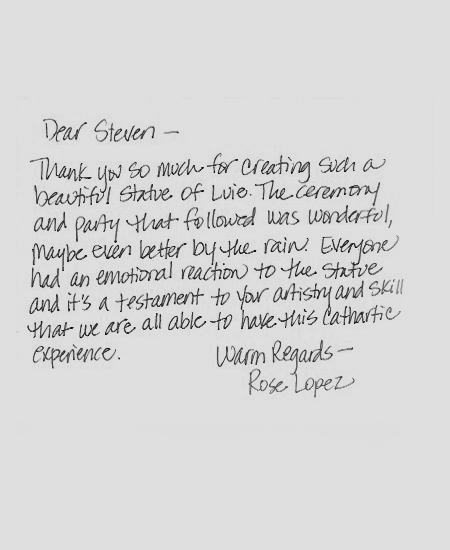 Dear Steven —
Thank you so much for creating such a
beautiful statue of Luie. The ceremony
and party that followed was wonderful,
maybe even better by the rain. Everyone
had an emotional reaction to the statue
and it's a testament to your artistry and skill
that we are all able to have this cathartic
experience.
Warm Regards —
Rose Lopez